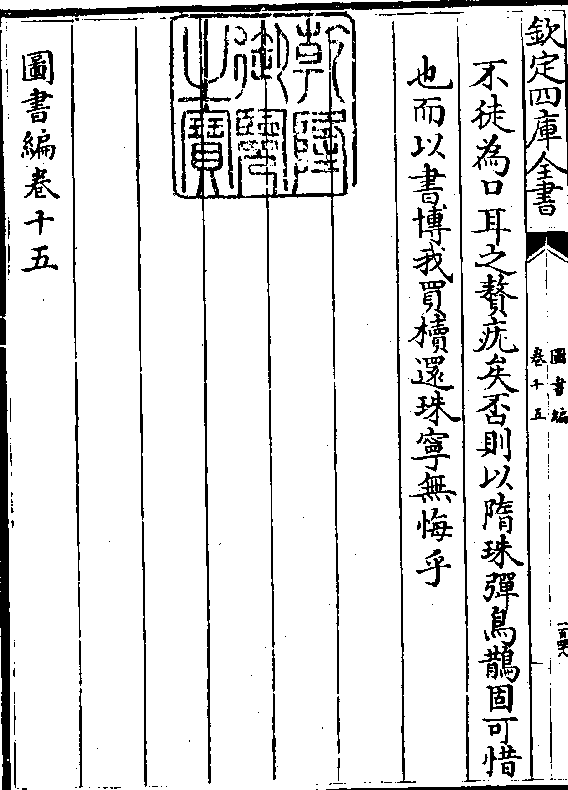 欽定四庫全書
圖書編
卷十五
一百四八
不徒為口耳之贅疣矣否則以隋珠彈鳥鵲固可惜
也而以書博我買櫝還珠寧無悔乎
乾隆御覽之寶
圖書編卷十五